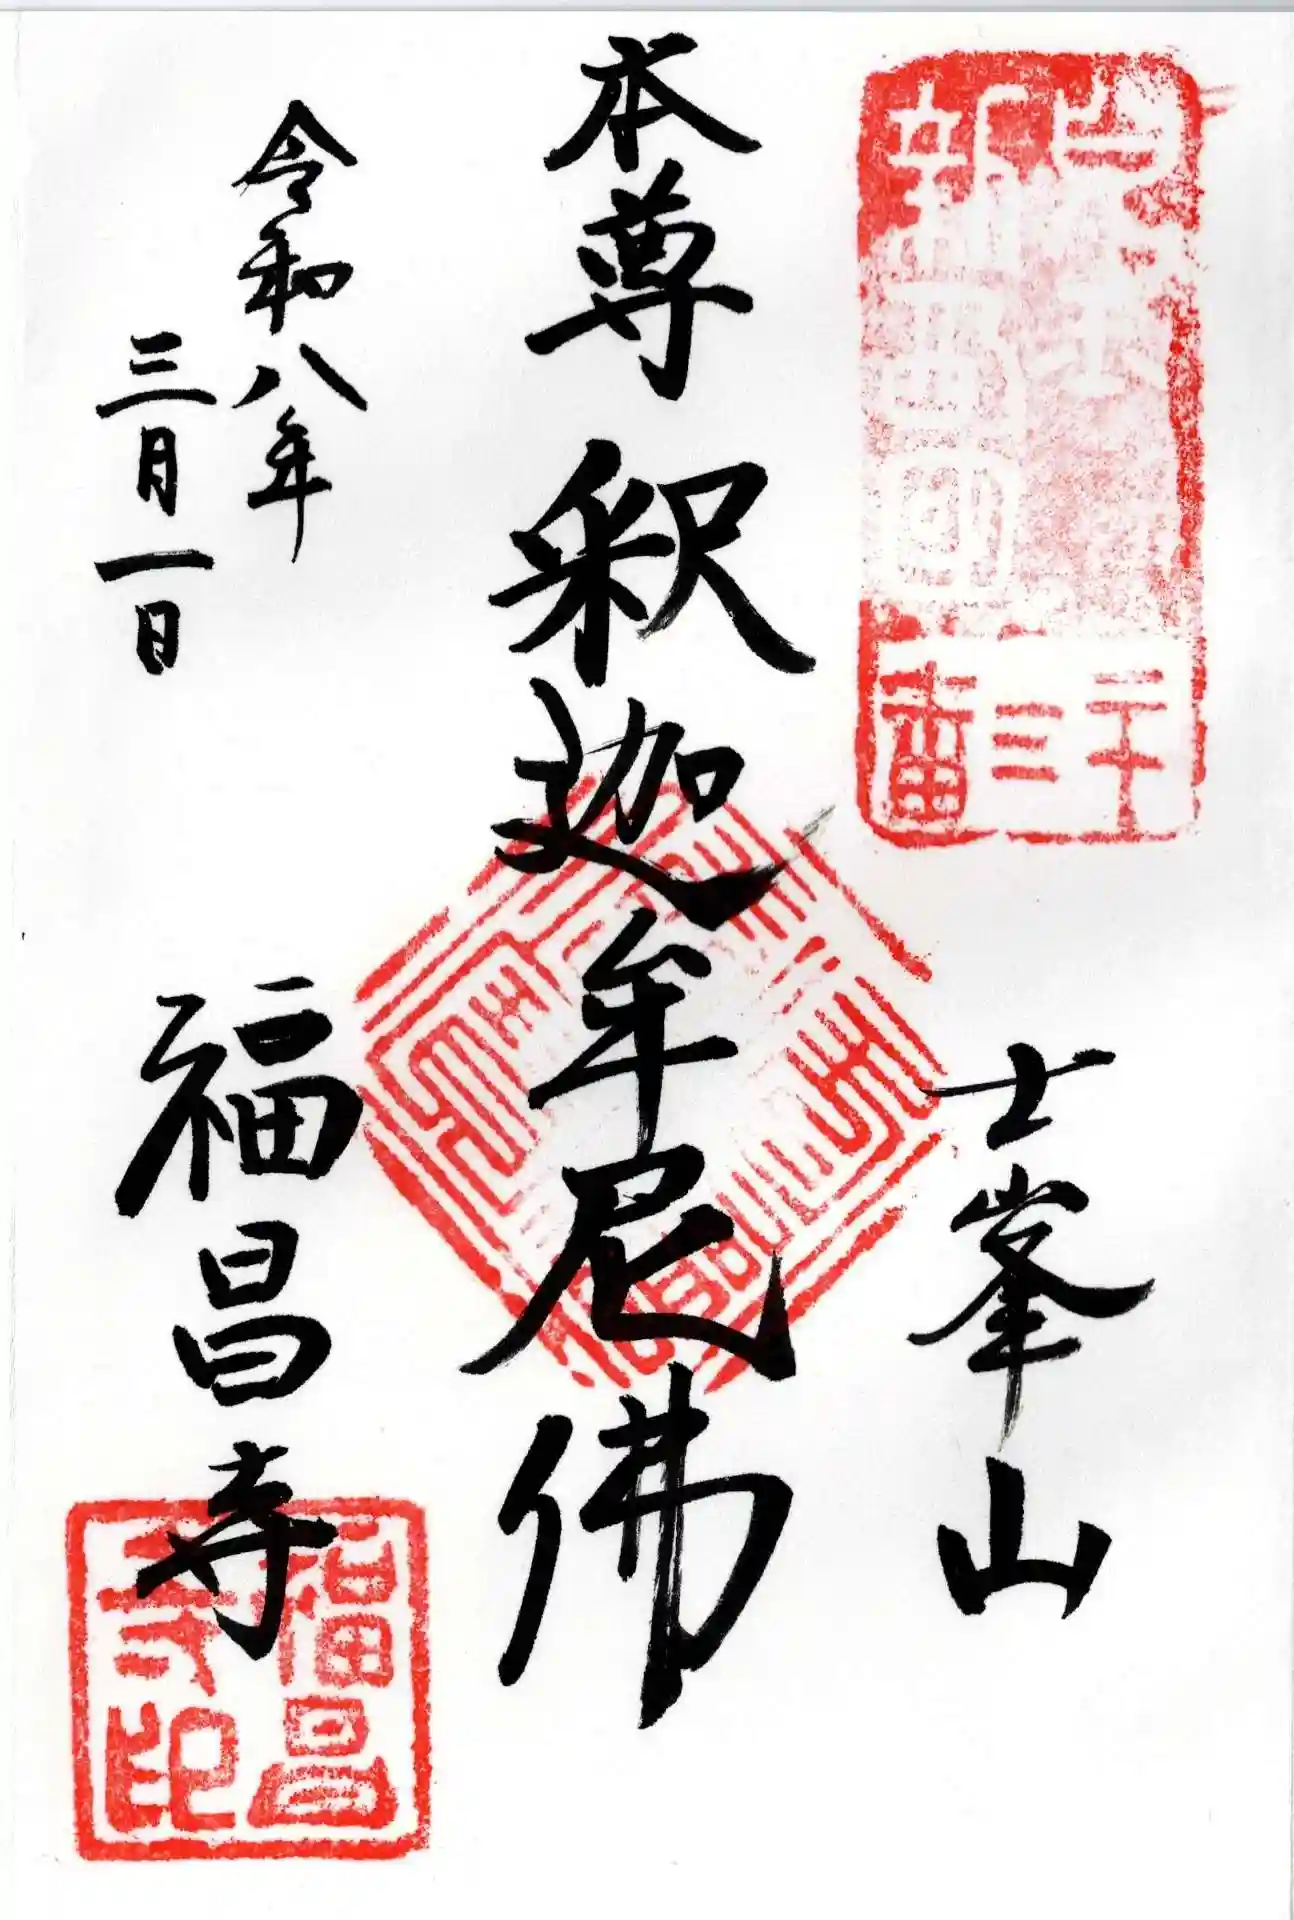 新西國
二十三番
士峯山
本尊 釈迦牟尼佛
令和八年
三月一日
福昌寺
福昌
寺印